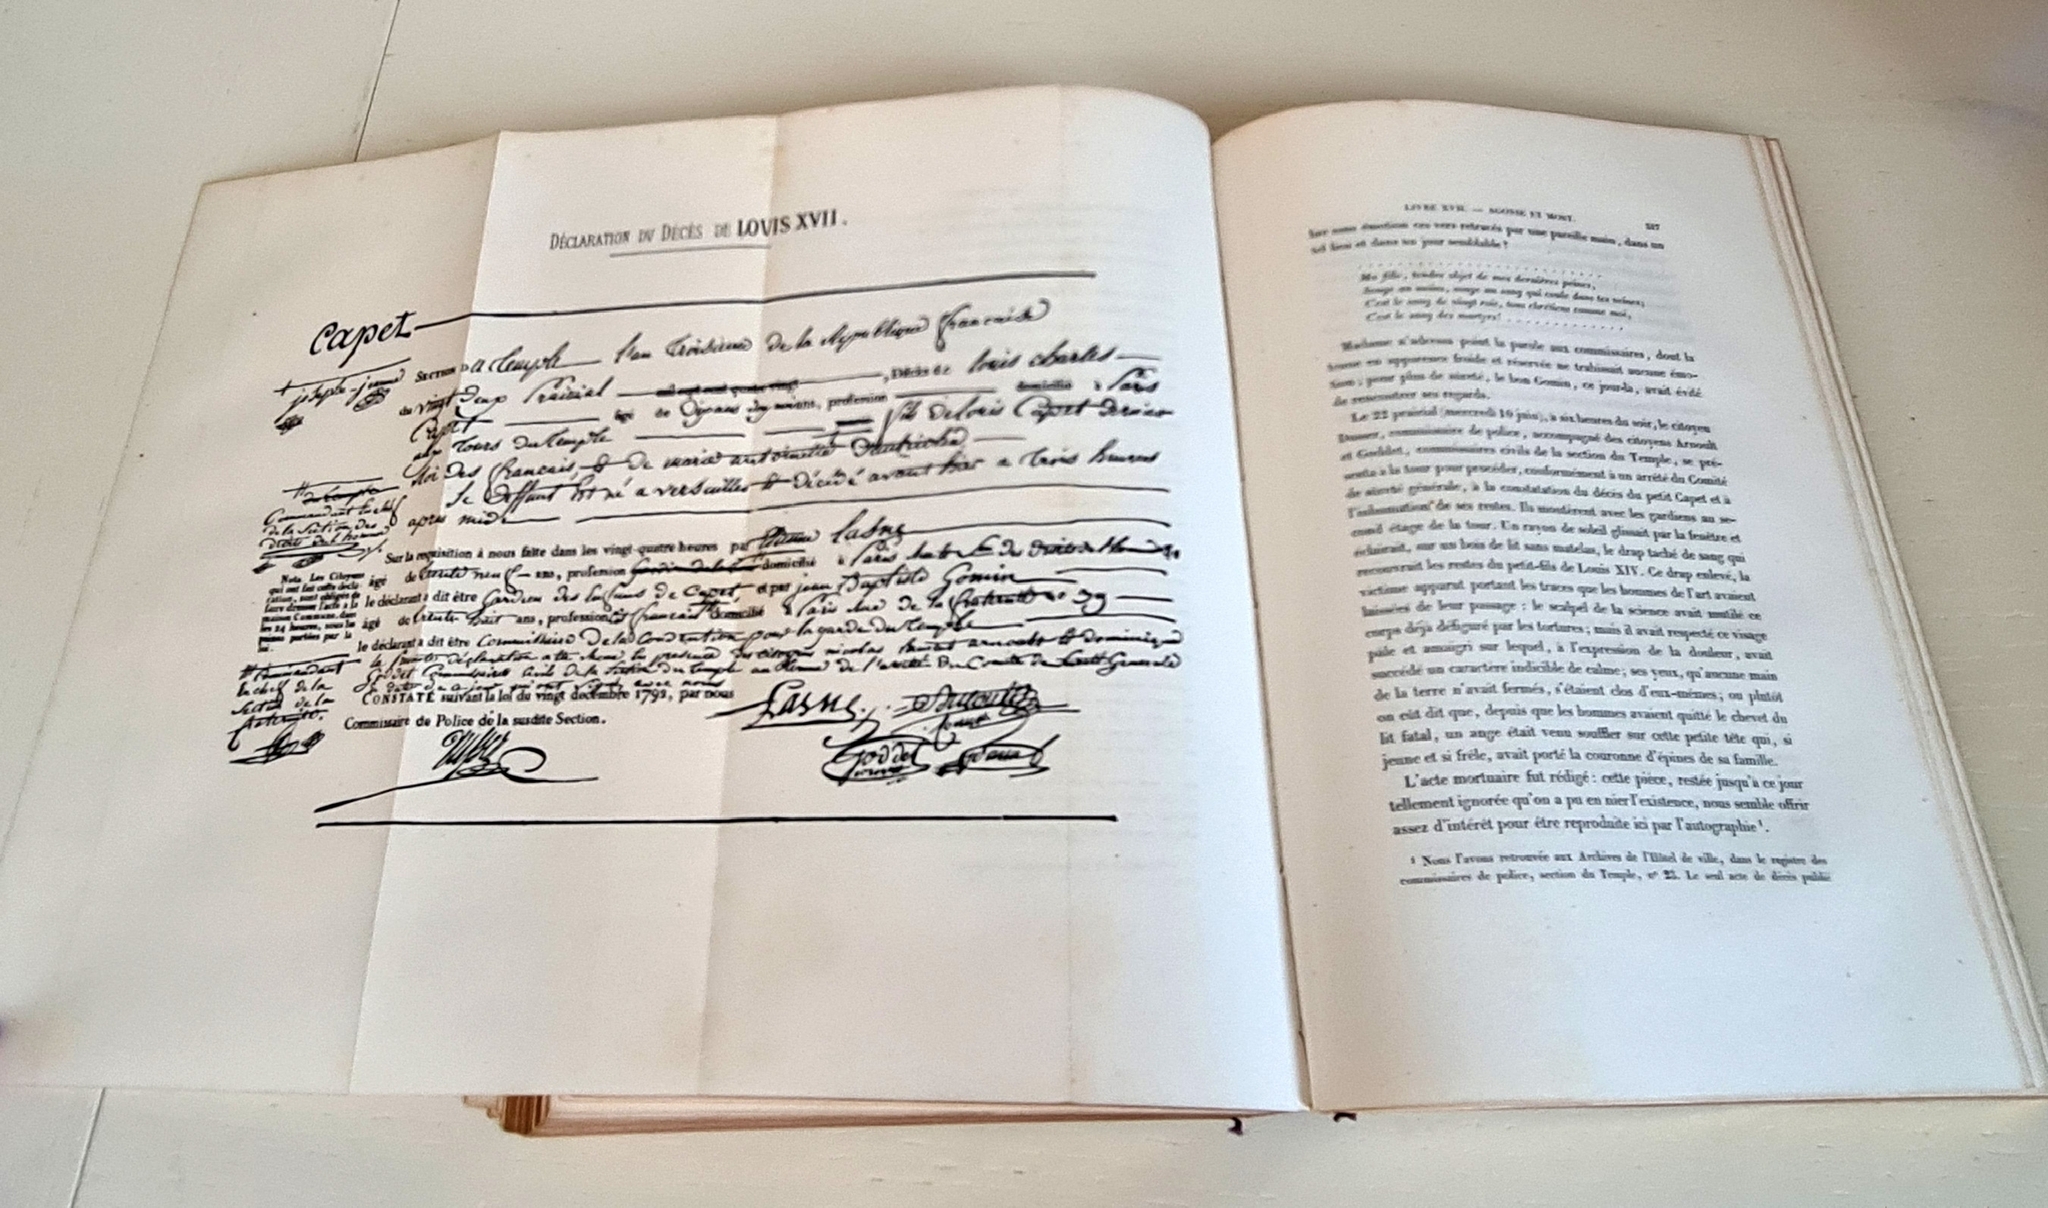 DÉCLARATION DU DÉCÈS DE LOUIS XVII.
Capet
SECTION du Temple l'an troisieme de la Republique francaise
du vingt deux Prairial, Décès de louis charles
Capet âgé de dix ans mois, profession domicilié à Paris
aux tours du Temple fils de louis Capet dernier
Roi des francais, et de marie antoinette
le deffunt est né a versailles et décédé avant hier a trois heures
après midi
Sur la réquisition à nous faite dans les vingt-quatre heures par Lasne
âgé de trente neuf ans, profession domicilié à Paris
le déclarant a dit être Gardien des enfans de Capet, et par jean Baptiste Gomin
âgé de trente huit ans, profession francais domicilié à Paris rue de la fraternité n° 39
le déclarant a dit être Commissaire de la Convention pour la garde du Temple
la déclaration a été en presence des citoyens nicolas arnoult et dominique
Goddet Commissaires civils de la Section du temple
CONSTATÉ suivant la loi du vingt décembre 1792, par nous
Commissaire de Police de la susdite Section.
Lasne
Goddet
Commandant en chef
de la Section des
droits de l'homme
Nota. Les Citoyens
qui ont fait cette décla-
ration, sont obligés de
faire dresser l'acte à la
maison Commune, dans
les 24 heures, sous les
peines portées par la
loi.
Commandant
en chef de la
Section de la
fraternité.
LIVRE XVII. — AGONIE ET MORT. 527
sans émotion ces vers retracés par une pareille main, dans un
tel lieu et dans un jour semblable?
Ma fille, tendre objet de mes dernières peines,
Songe au moins, songe au sang qui coule dans tes veines;
C'est le sang de vingt rois, tous chrétiens comme moi,
C'est le sang des martyrs!
Madame n'adressa point la parole aux commissaires, dont la
tenue en apparence froide et réservée ne trahissait aucune émo-
tion; pour plus de sûreté, le bon Gomin, ce jour-là, avait évité
de rencontrer ses regards.
Le 22 prairial (mercredi 10 juin), à six heures du soir, le citoyen
Dusser, commissaire de police, accompagné des citoyens Arnoult
et Goddet, commissaires civils de la section du Temple, se pré-
senta à la tour pour procéder, conformément à un arrêté du Comité
de sûreté générale, à la constatation du décès du petit Capet et à
l'inhumation de ses restes. Ils montèrent avec les gardiens au se-
cond étage de la tour. Un rayon de soleil glissait par la fenêtre et
éclairait, sur un bois de lit sans matelas, le drap taché de sang qui
recouvrait les restes du petit-fils de Louis XIV. Ce drap enlevé, la
victime apparut portant les traces que les hommes de l'art avaient
laissées de leur passage : le scalpel de la science avait mutilé ce
corps déjà défiguré par les tortures; mais il avait respecté ce visage
pâle et amaigri sur lequel, à l'expression de la douleur, avait
succédé un caractère indicible de calme; ses yeux, qu'aucune main
de la terre n'avait fermés, s'étaient clos d'eux-mêmes; ou plutôt
on eût dit que, depuis que les hommes avaient quitté le chevet du
lit fatal, un ange était venu souffler sur cette petite tête qui, si
jeune et si frêle, avait porté la couronne d'épines de sa famille.
L'acte mortuaire fut rédigé : cette pièce, restée jusqu'à ce jour
tellement ignorée qu'on a pu en nier l'existence, nous semble offrir
assez d'intérêt pour être reproduite ici par l'autographie¹.
¹ Nous l'avons retrouvée aux Archives de l'Hôtel de ville, dans le registre des
commissaires de police, section du Temple, n° 23. Le seul acte de décès publié